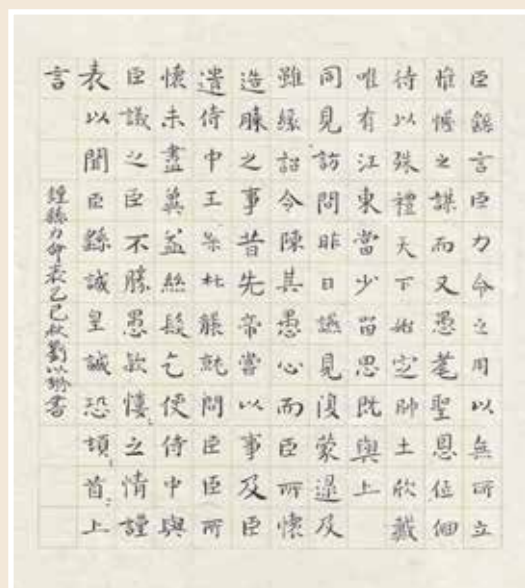 臣繇言臣力命之用以無所立
惟帷之謀而又愚耄聖恩低佪
待以殊禮天下始定帥土欣戴
唯有江東當少留思既與上
同見訪問昨日疏見復蒙逮及
雖緣詔令陳其愚心而臣所懷
造膝之事昔先帝嘗以事及臣
遣侍中王粲杜襲就問臣臣所
懷未盡奚益絲髮乞使侍中與
臣議之臣不勝愚款慺〻之情謹
表以聞臣繇誠皇誠恐頓〻首〻上
言
鍾繇力命表乙巳秋劉以書